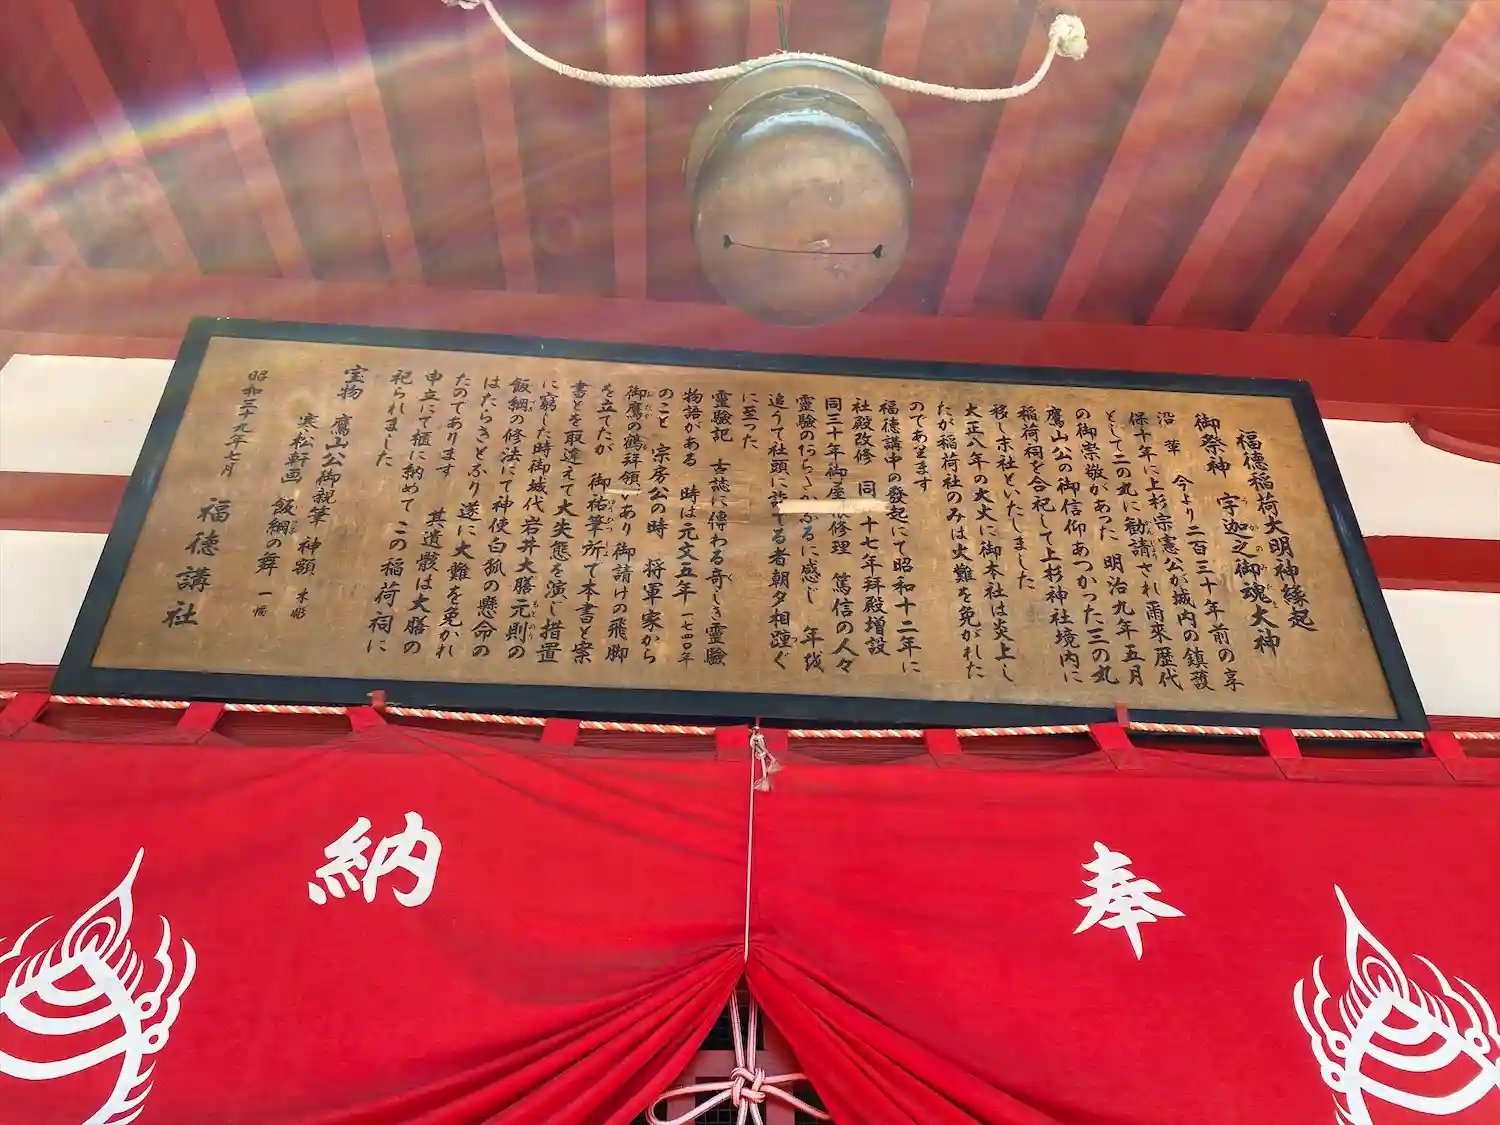 福徳稲荷大明神縁起
御祭神 宇迦之御魂大神
沿革 今より二百三十年前の享
保十年に上杉宗憲公が城内の鎮護
として二の丸に勧請され爾来歴代
の御崇敬があった 明治九年五月
鷹山公の御信仰あつかった三の丸
稲荷祠を合祀して上杉神社境内に
移し末社といたしました
大正八年の大火に御本社は炎上し
たが稲荷社のみは火難を免がれた
のであります
福徳講中の発起にて昭和十二年に
社殿改修 同 十七年拝殿増設
同三十年御屋 修理 篤信の人々
霊験の に感じ 年を
追うて社頭に詣でる者朝夕相踵ぐ
に至った
霊験記 古誌に傳わる奇しき霊験
物語がある 時は元文五年 一七四〇年
のこと 宗房公の時 将軍家から
御鷹の鶴拝領 とあり御請けの飛脚
を立てたが 御祐筆所て本書と案
書とを取違えて大失態を演じ措置
に窮した時御城代岩井大膳元則の
飯綱の修法にて神使白狐の懸命の
はたらきとなり遂に大難を免かれ
たのであります 其遺骸は大膳の
申立にて櫃に納めて この稲荷祠に
祀られました
宝物 鷹山公御親筆 神額 木彫
寒松軒画 飯綱の舞 一幅
昭和三十九年七月 福徳講社
奉
納